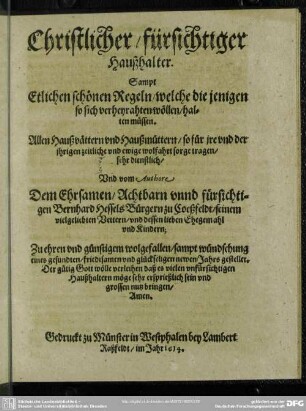 Christlicher/fürsichtiger
Haußhalter.
Sampt
Etlichen schönen Regeln/welche die jenigen
so sich verheyrahten wöllen/hal-
ten müssen.
Allen Haußvättern vnd Haußmüttern/so für jre vnd der
jhrigen zeitliche vnd ewige wolfahrt sorge tragen/
sehr dienstlich/
Vnd vom Authore
Dem Ehrsamen/Achtbarn vnnd fürsichti-
gen Bernhard Hessels Bürgern zu Coeßfeldt/seinem
vielgeliebten Vettern/vnd dessen lieben Ehegemahl
vnd Kindern/
Zu ehren vnd günstigem wolgefallen/sampt wündschung
eines gesundten/friedsamen vnd glückseligen newen Jahrs gestellet.
Der gütig Gott wölle verleihen daß es vielen vnfürsichtigen
Haußhaltern möge sehr ersprießlich sein vnd
grossen nutz bringen/
Amen.
Gedruckt zu Münster in Westphalen bey Lambert
Raßfeldt/im Jahr 1614.